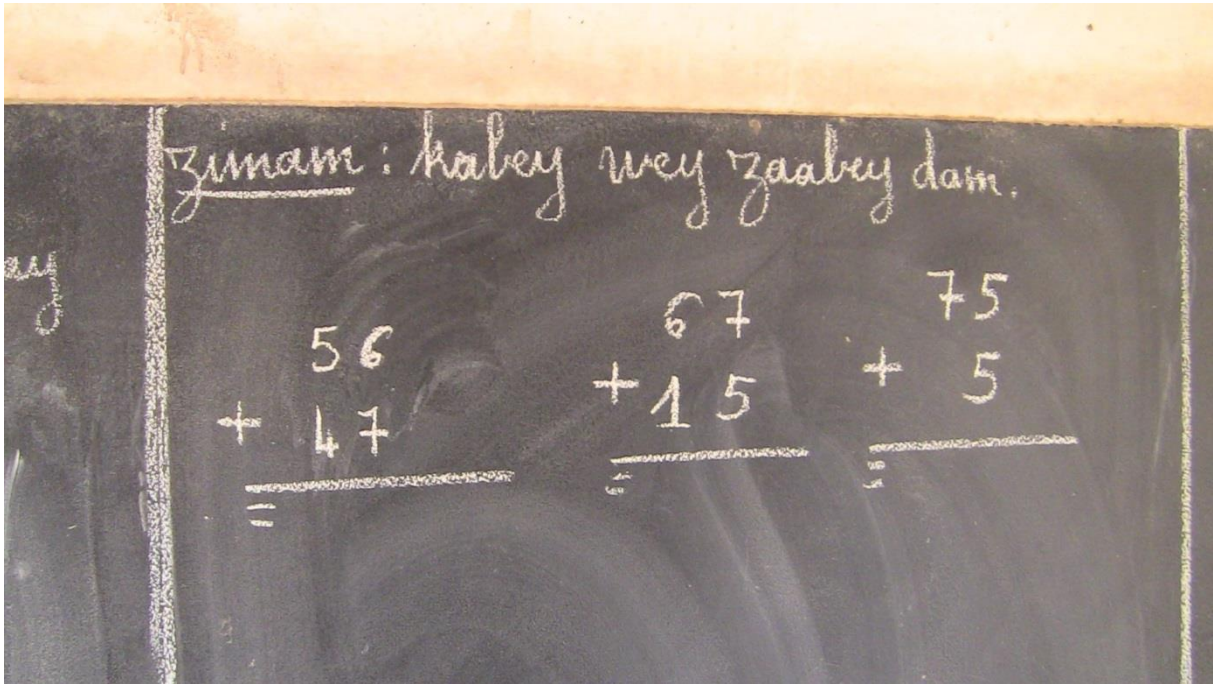 ay
zunam : kabey wey zaabey dam.
56
+ 47
=
67
+ 15
=
75
+ 5
=